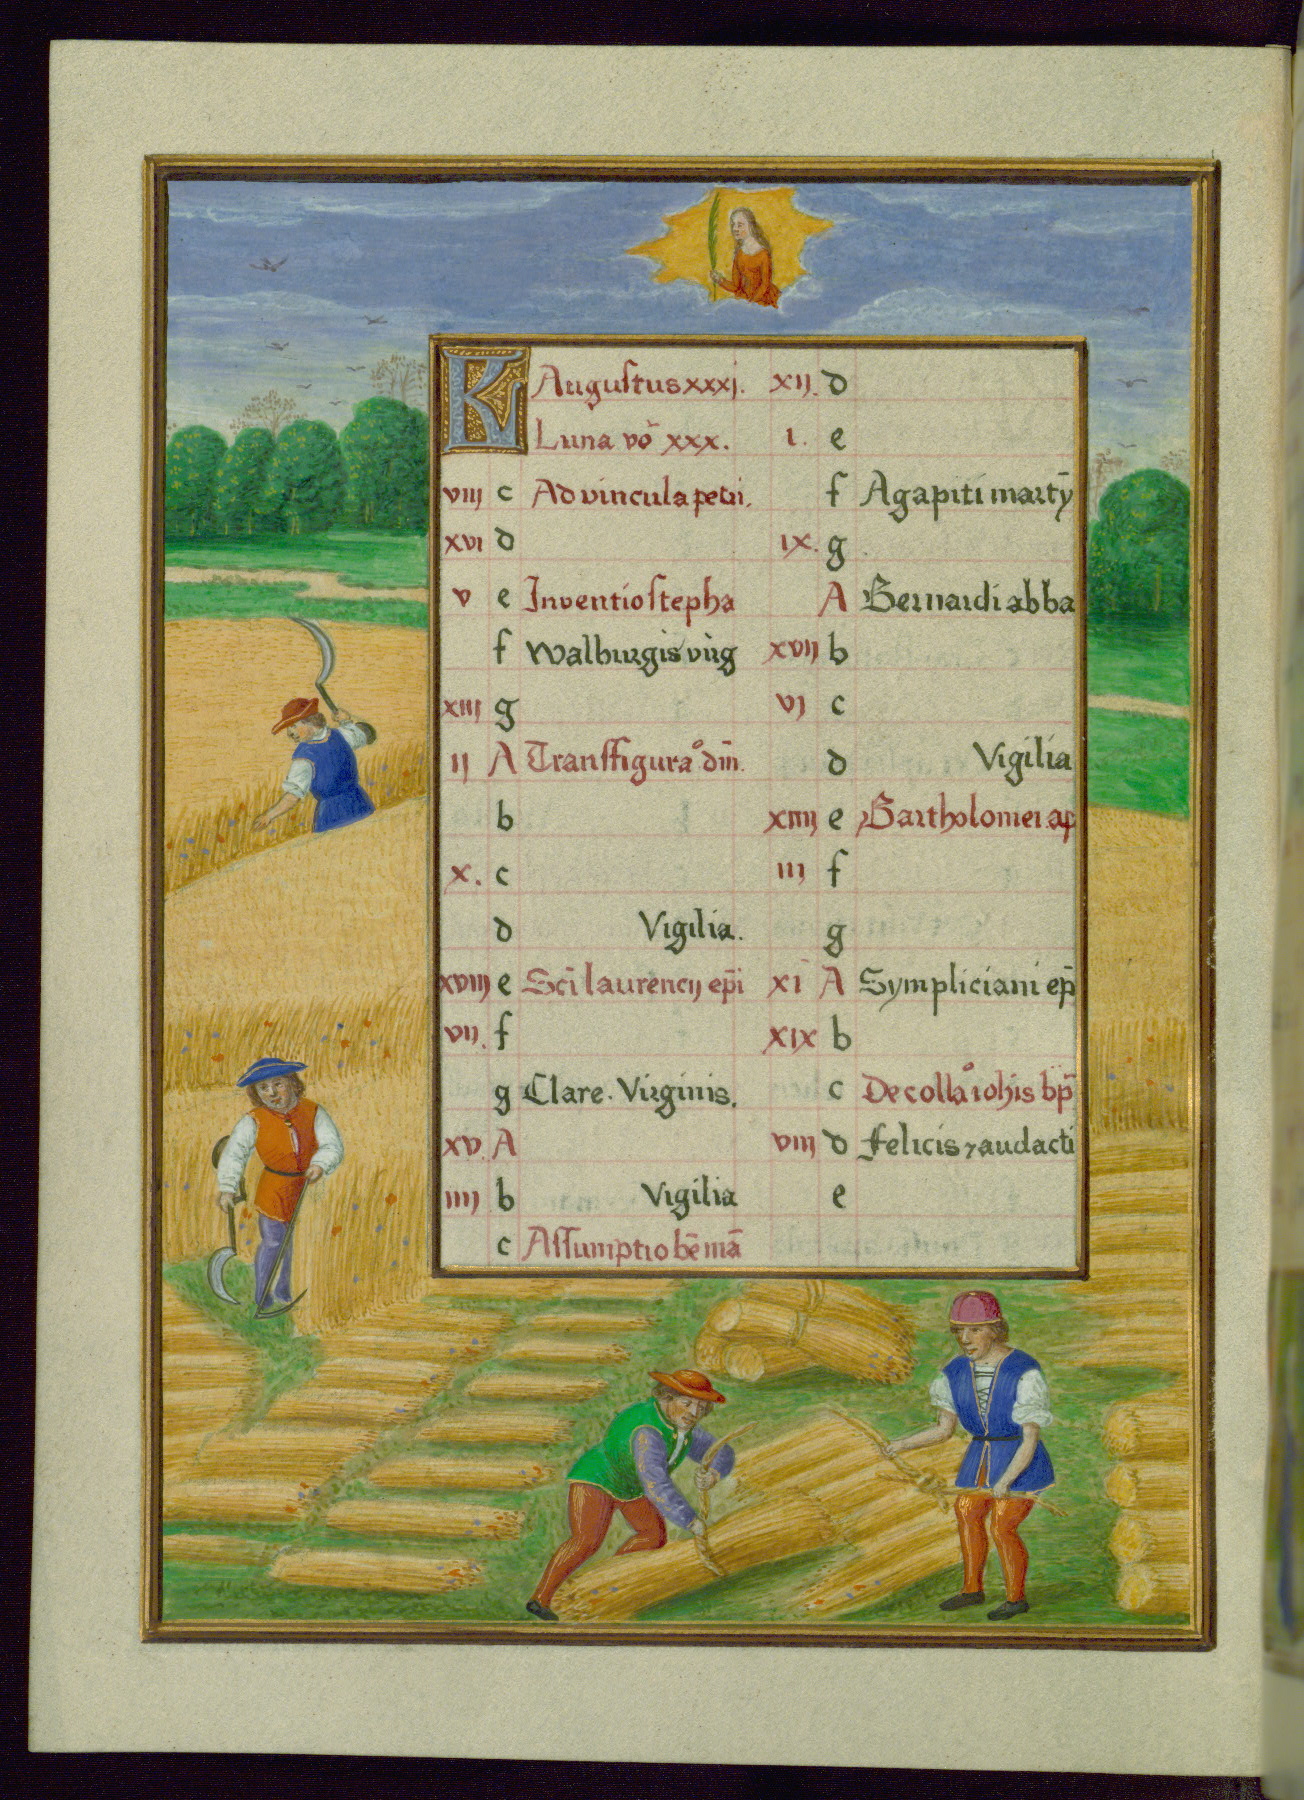 K Augustus xxxj.
Luna vō xxx.
viij c Ad vincula petri.
xvi d
v e Inventio stepha
f Walburgis virg
xiij g
ij A Transffiguraᵒ dm̄.
b
x. c
d Vigilia.
xviij e Scī laurēncij ep̄i
vij. f
g Clare. Virginis.
xv. A
iiij b Vigilia
c Assumptio bē mā
xij. d
i. e
f Agapiti martȳ
ix. g
A Bernardi abba
xvij b
vj c
d Vigilia
xiiij e Bartholomei. ap
iij f
g
xi A Sympliciani ep̄
xix b
c Decollaᵒ iohis bp̄
viij d felicis ⁊ audacti
e